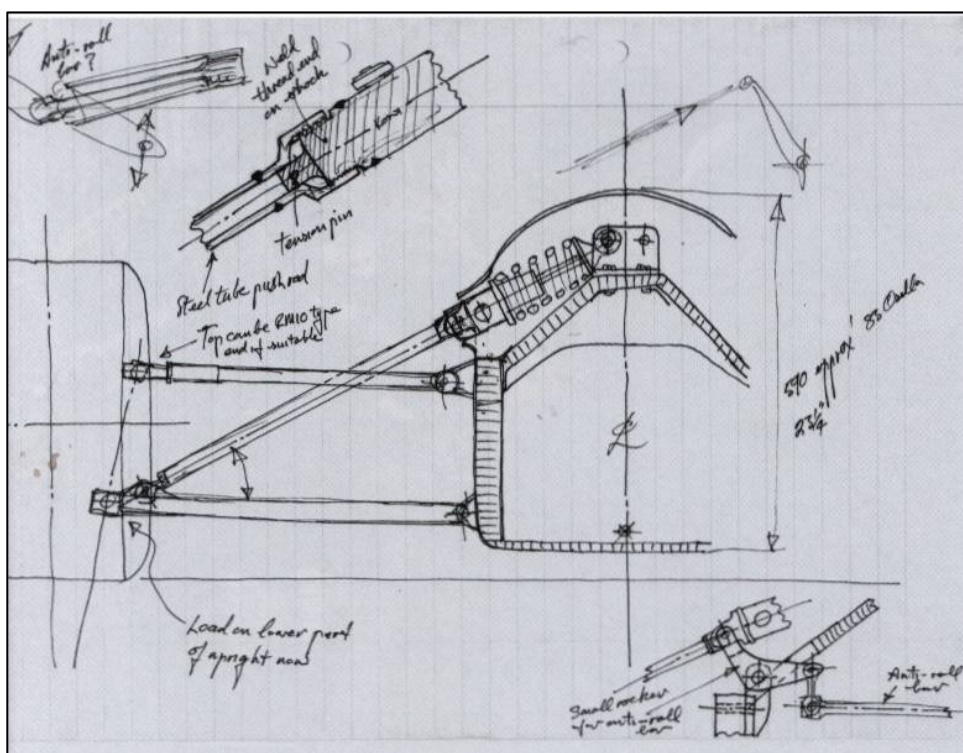 Anti-roll
bar?
Weld
thread end
on shock
tension pin
Steel tube pushrod
Top can be RM10 type
end if suitable
590 approx
23 1/4"
℄
Load on lower part
of upright now
Small rocker
for anti-roll
bar
Anti-roll
bar